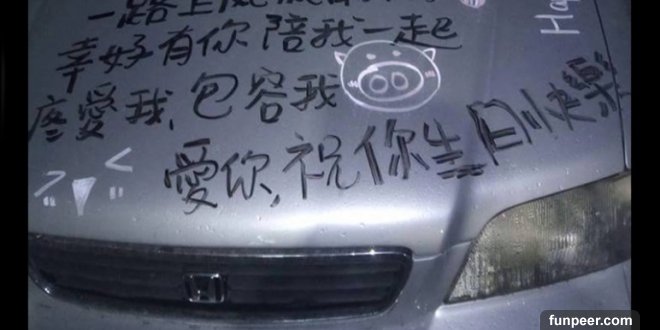 一路上風風雨雨
幸好有你陪我一起
疼愛我,包容我
愛你,祝你生日快樂
Ha
funpeer.com